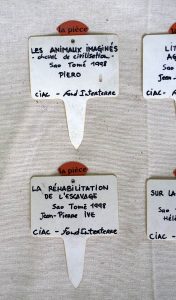 la pièce
LES ANIMAUX IMAGINÉS
- cheval de civilisation -
Sao Tomé 1998
PIERO
CIAC - fond Interterre
LIT
AG
S
Jean-
CIAC -
la pièce
LA RÉHABILITATION
DE L'ESCAVAGE
Sao Tomé 1998
Jean-Pierre IVE
CIAC - fond Interterre
SUR LA
Sa
Hélè
CIAC -